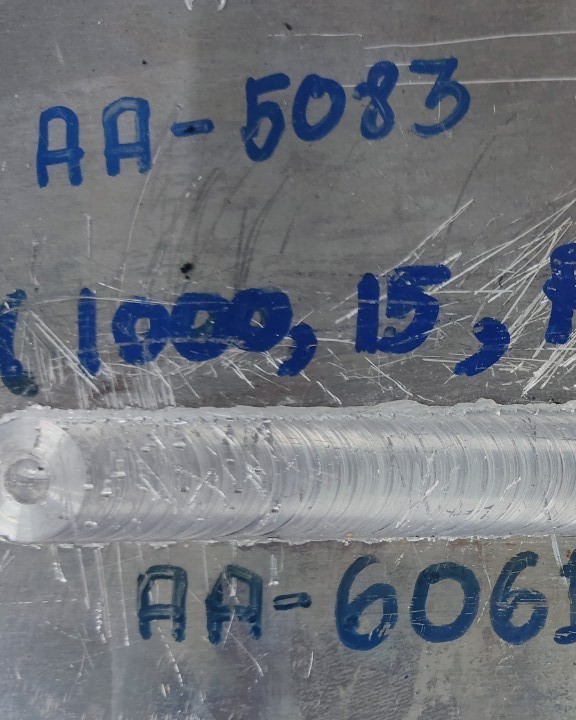 AA-5083
(1000, 15,
AA-6061